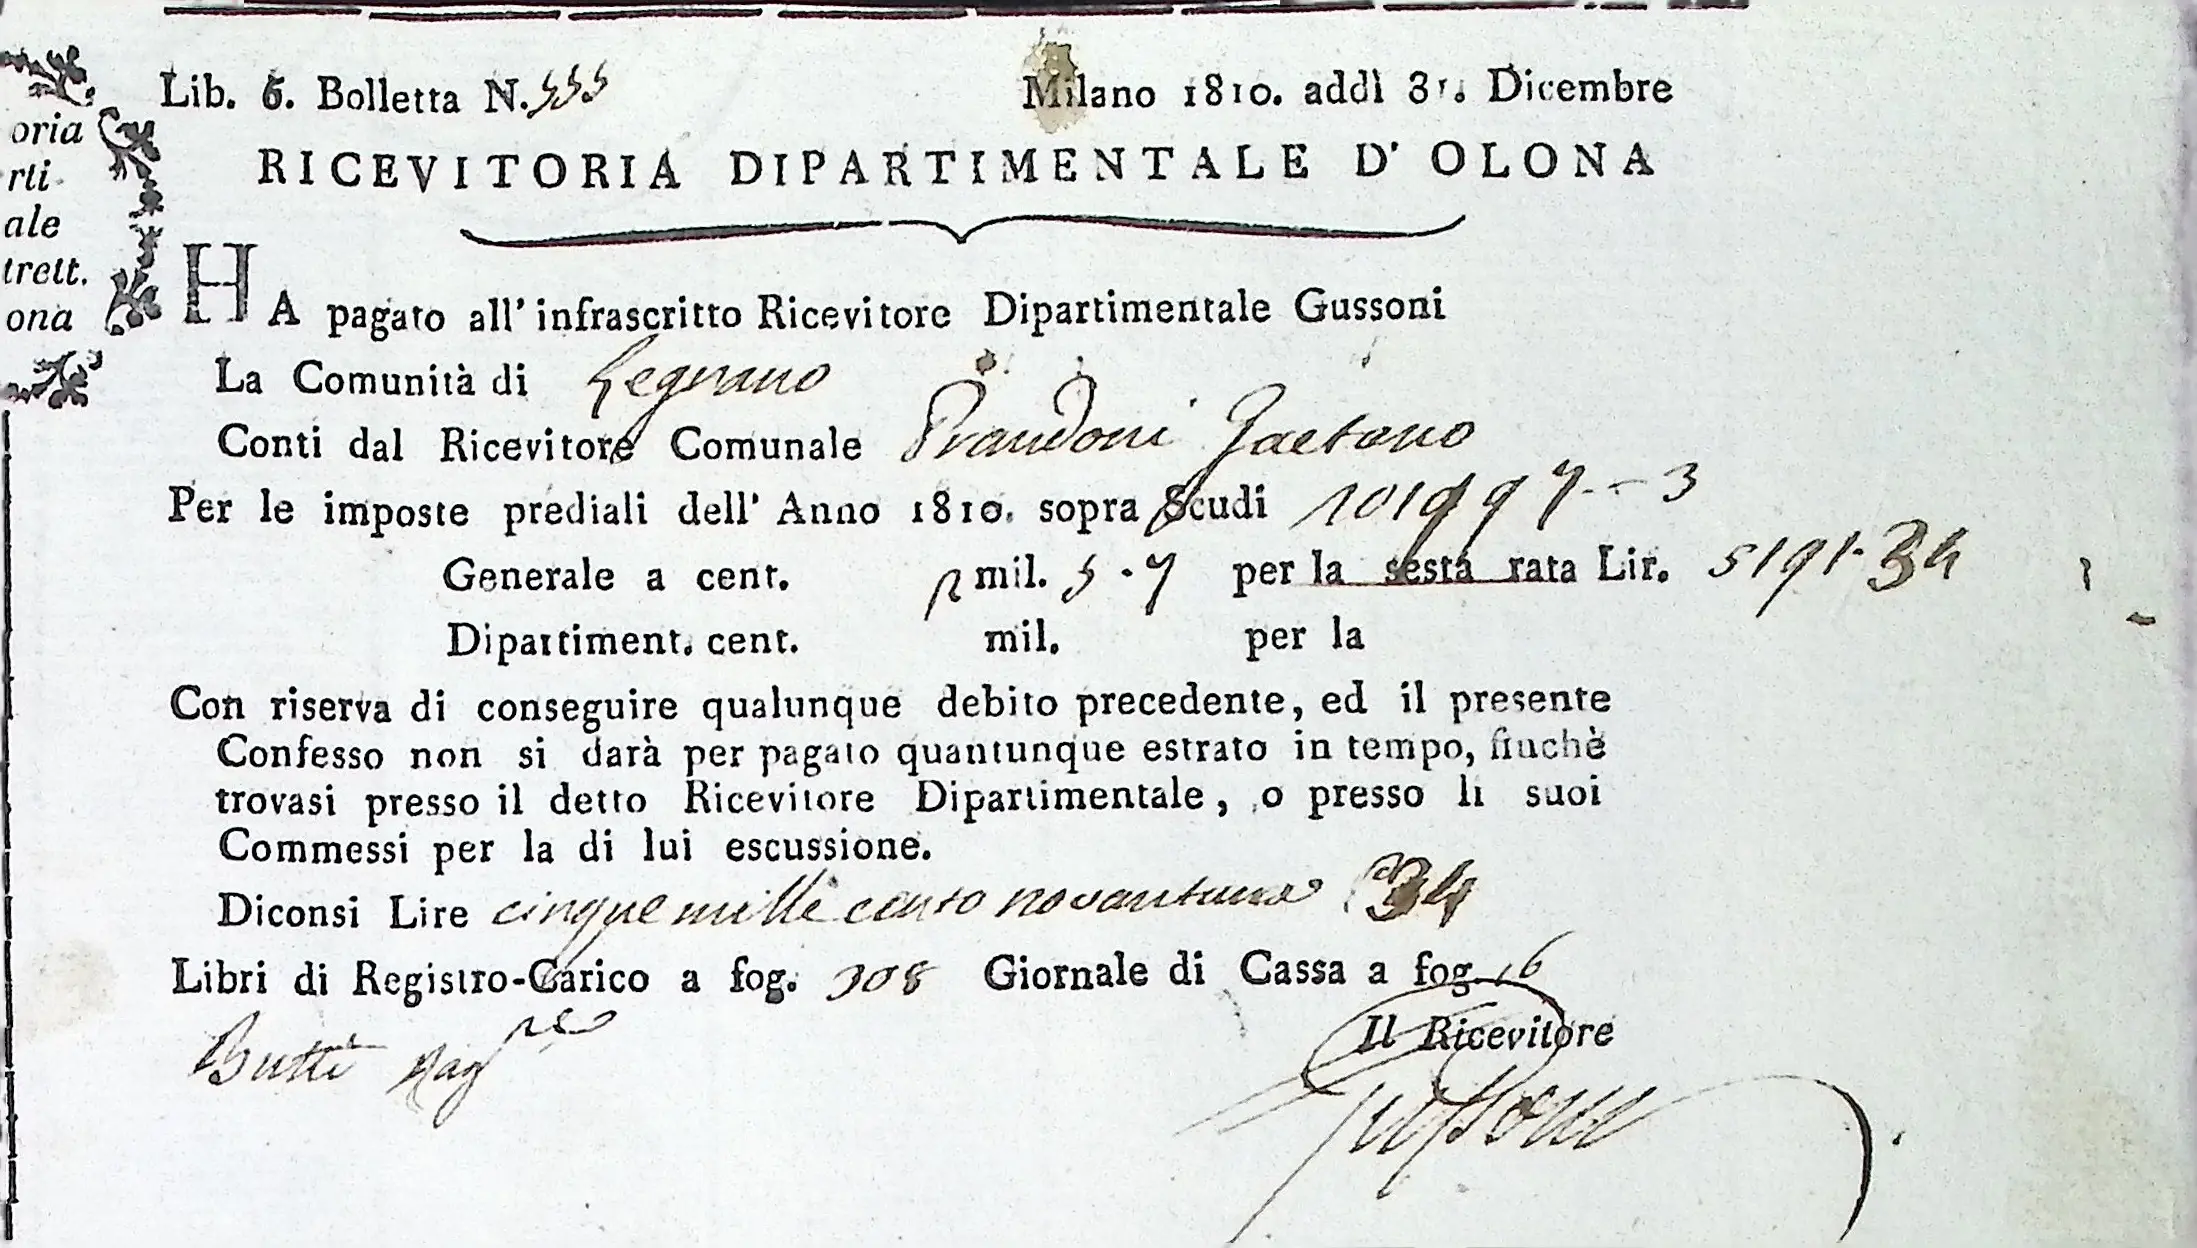 oria
rti
ale
trett.
ona
Lib. 6. Bolletta N. 555 Milano 1810. addì 31. Dicembre
RICEVITORIA DIPARTIMENTALE D' OLONA
HA pagato all' infrascritto Ricevitore Dipartimentale Gussoni
La Comunità di Legnano
Conti dal Ricevitore Comunale Prandoni Gaetano
Per le imposte prediali dell' Anno 1810. sopra Scudi 101997-- 3
Generale a cent. mil. 5 . 7 per la sesta rata Lir. 5191.34
Dipartiment. cent. mil. per la
Con riserva di conseguire qualunque debito precedente, ed il presente
Confesso non si darà per pagato quantunque estrato in tempo, finchè
trovasi presso il detto Ricevitore Dipartimentale, o presso li suoi
Commessi per la di lui escussione.
Diconsi Lire cinque mille cento novantuna 34
Libri di Registro-Carico a fog. 308 Giornale di Cassa a fog. 16
Il Ricevitore
Butti Rag.re
Gussoni